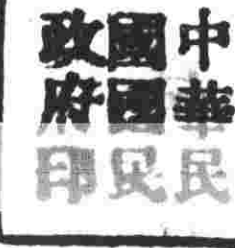 中華民
國國民
政府印